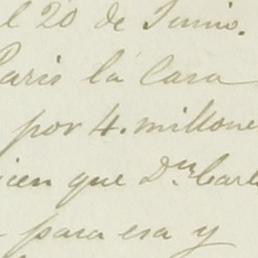 el 20 de Junio.
Paris la Casa
por 4. millone
icen que Dn Carl
para esa y